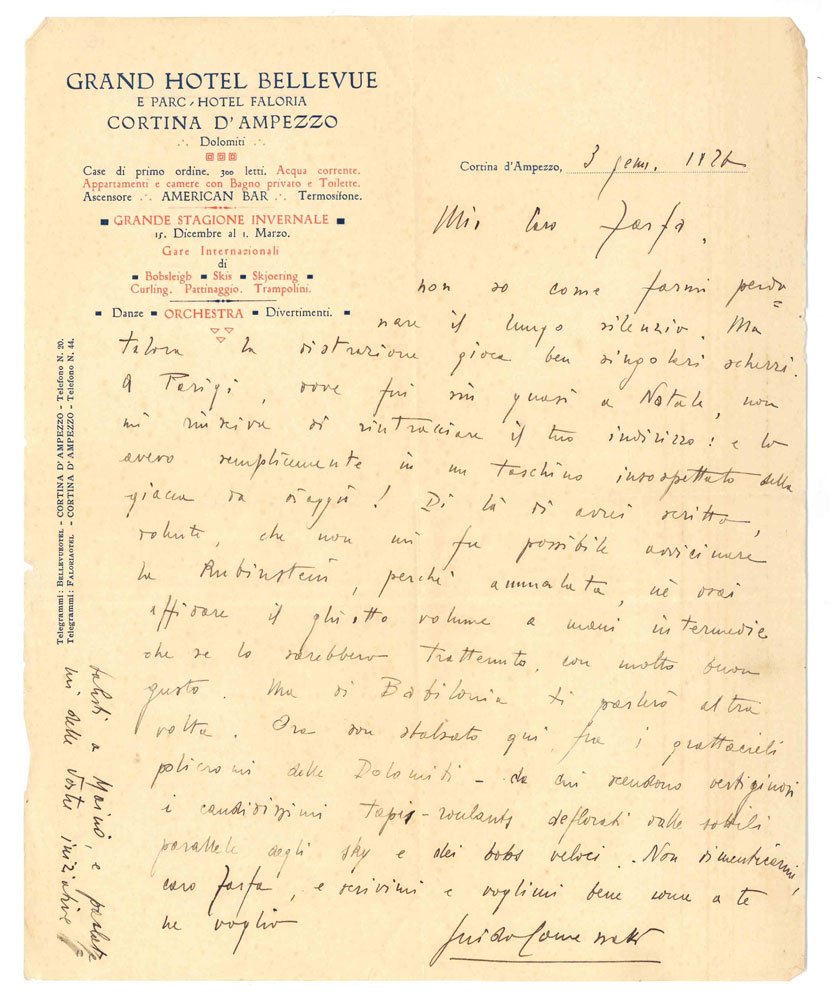 GRAND HOTEL BELLEVUE
E PARC-HOTEL FALORIA
CORTINA D'AMPEZZO
Dolomiti
Case di primo ordine. 300 letti. Acqua corrente.
Appartamenti e camere con Bagno privato e Toilette.
Ascensore AMERICAN BAR Termosifone.
GRANDE STAGIONE INVERNALE
15. Dicembre al 1. Marzo.
Gare Internazionali
di
Bobsleigh Skis Skjoering
Curling. Pattinaggio. Trampolini.
Danze ORCHESTRA Divertimenti.
Telegrammi: BELLEVUEOTEL - CORTINA D'AMPEZZO - Telefono N. 20.
Telegrammi: FALORIAOTEL - CORTINA D'AMPEZZO - Telefono N. 44.
Cortina d'Ampezzo, 3 genn. 1926
Mio Caro Farfa,
non so come farmi perdo=
nare il lungo silenzio. Ma
talora la distrazione gioca ben singolari scherzi.
A Parigi, dove fui sin quasi a Natale, non
mi riusciva di rintracciare il tuo indirizzo: e lo
avevo semplicemente in un taschino insospettato della
giacca da viaggio! Di là ti avrei scritto,
che non mi fu possibile avvicinare
la Rubinstein, perchè ammalata, nè osai
affidare il ghiotto volume a mani intermedie
che se lo sarebbero trattenuto, con molto buon
gusto. Ma di Babilonia ti parlerò altra
volta. Ora son sbalzato qui, fra i grattacieli
policromi delle Dolomiti - da cui scendono vertiginosi
i candidissimi tapis-roulants deflorati dalle sottili
parallele degli sky e dei bobs veloci. Non dimenticarmi,
caro Farfa, e scrivimi e voglimi bene come a te
ne voglio
saluti a e parlate
mi delle vostre iniziative